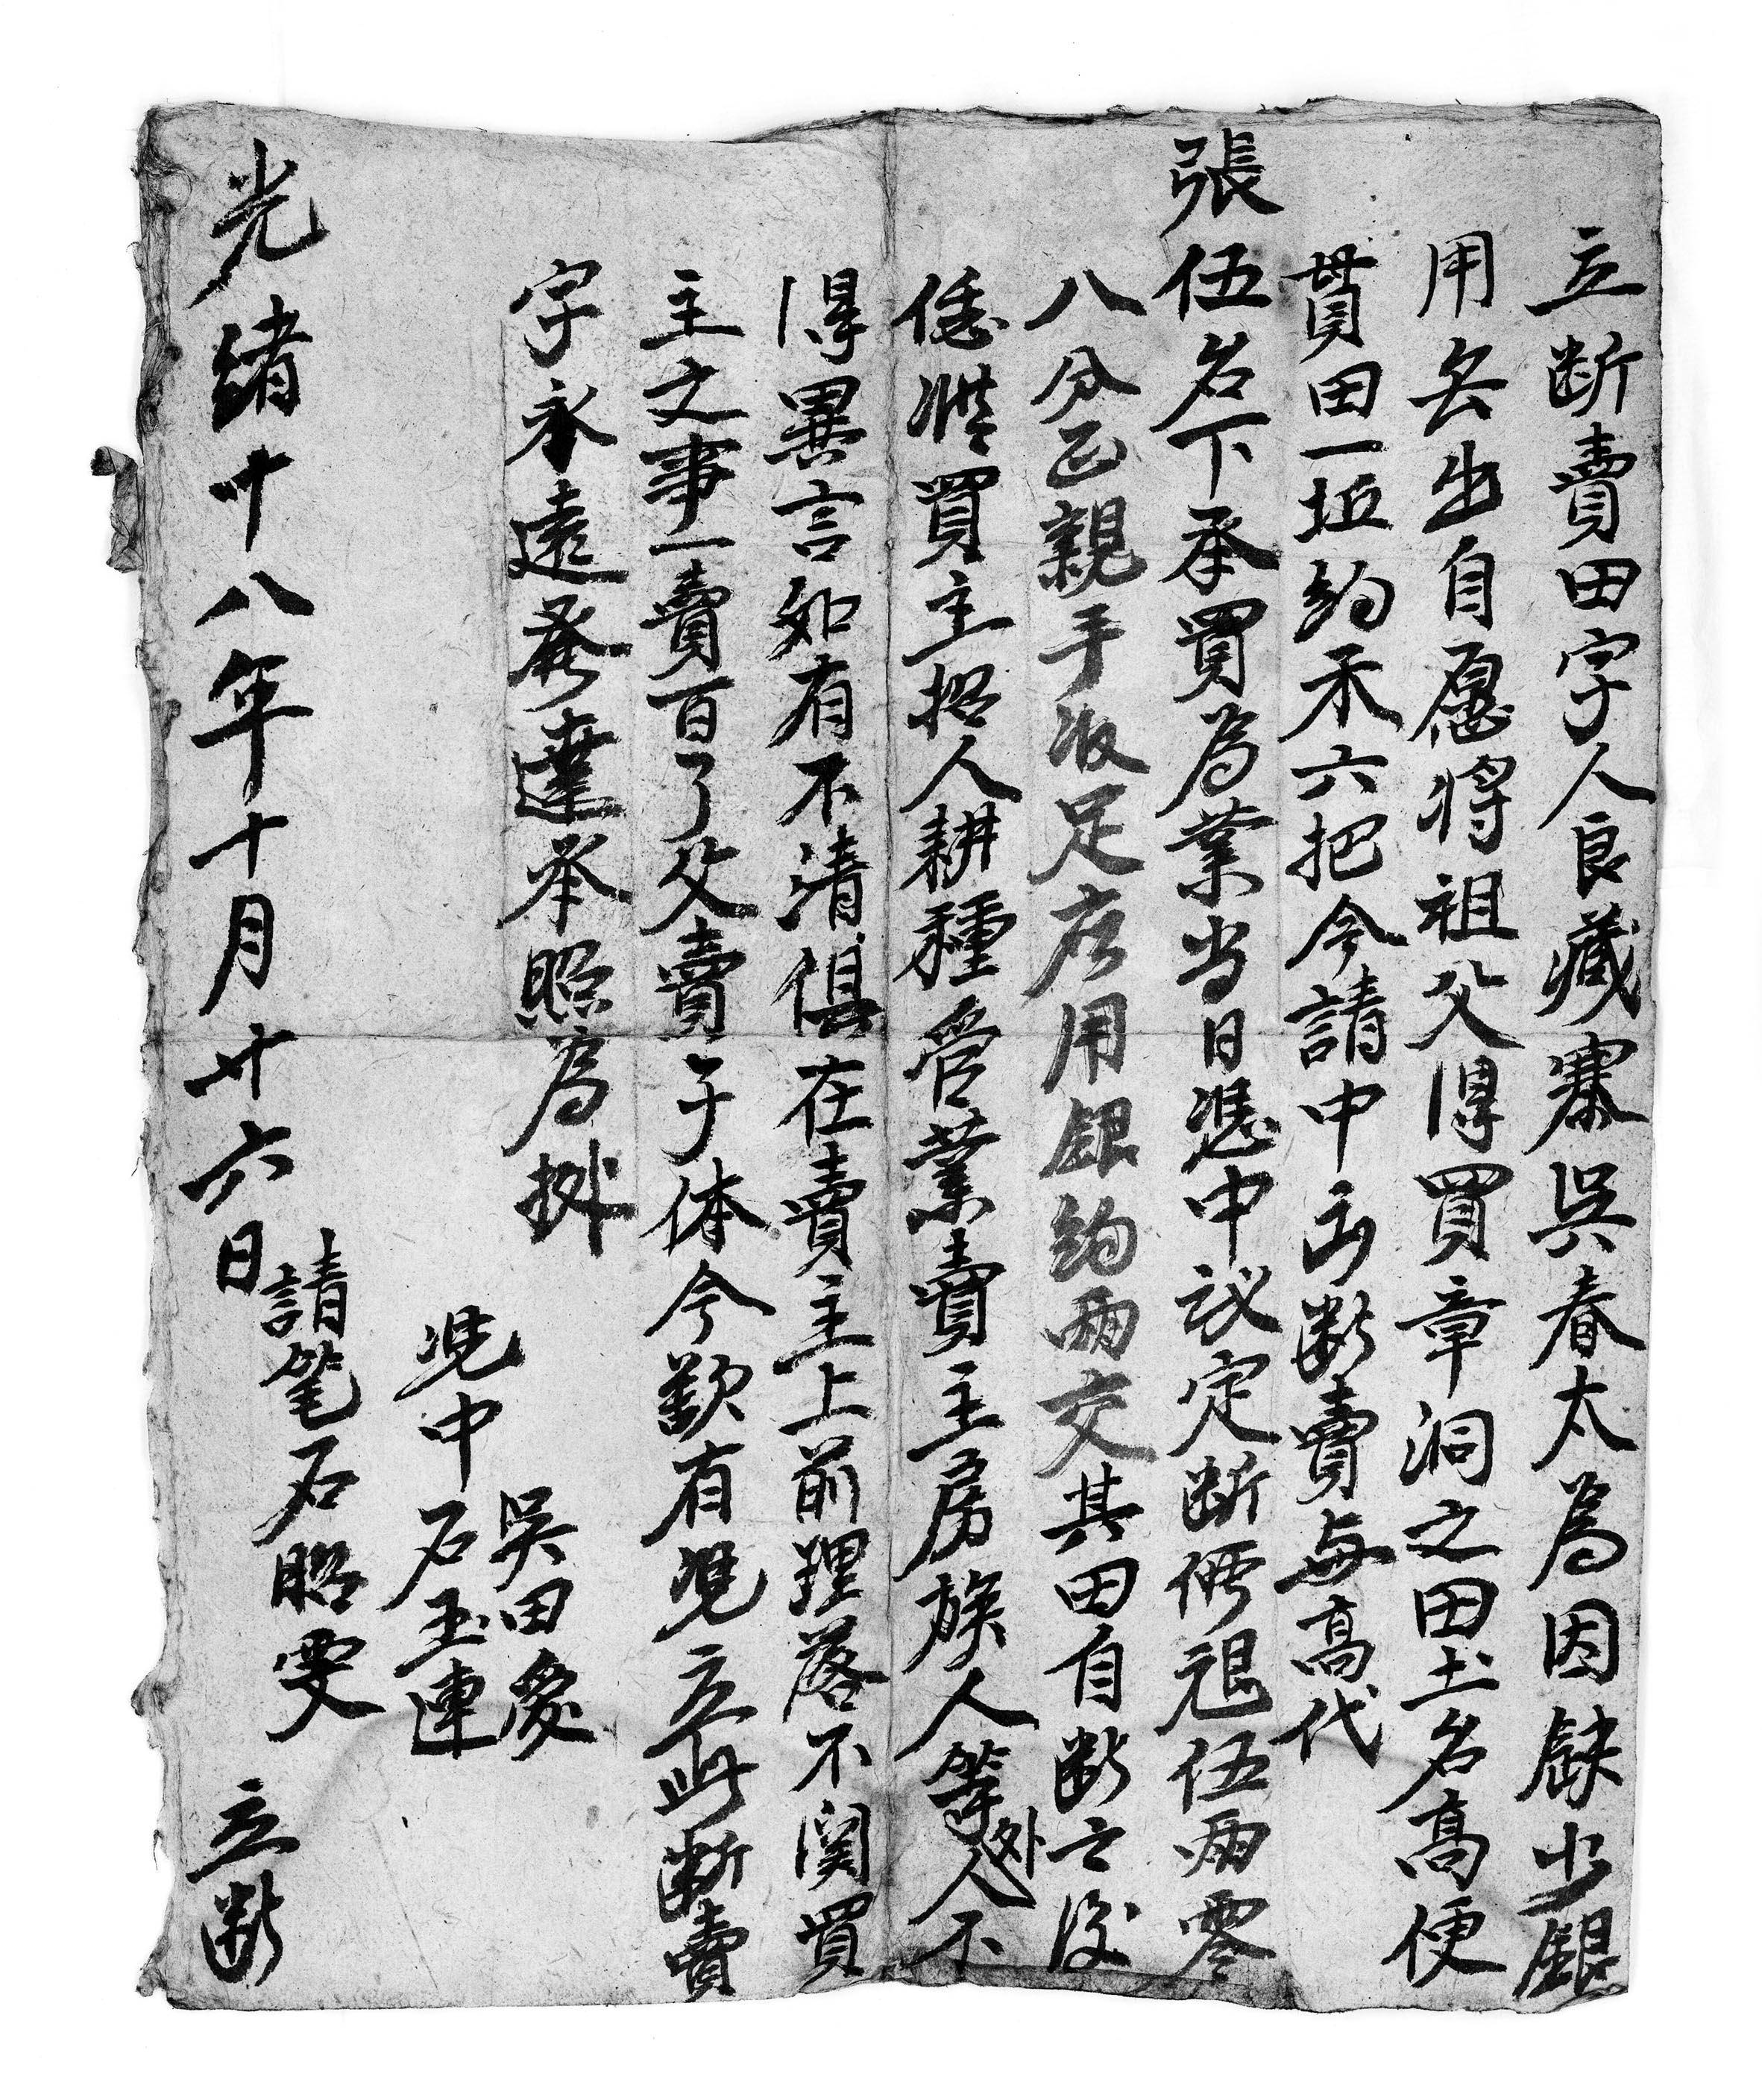 立斷賣田字人良藏寨吳春太為因缺少銀
用無出自愿將祖父得買章洞之田土名高便
貫田一坵約禾六把今請中出斷賣與高代
張伍名下承買為業当日憑中议定断價銀伍両零
八分正親手收足应用銀約両交其田自斷之後
恁憑買主招人耕種管業賣主房族人等外人不
得異言如有不清俱在賣主上前理落不関買
主之事一賣百了父賣子休今欲有凭立此断賣
字永遠發達承照為㨿
吳田慶
凭中石玉連
請笔石昭雯
光緒十八年十月廿六日 立斷